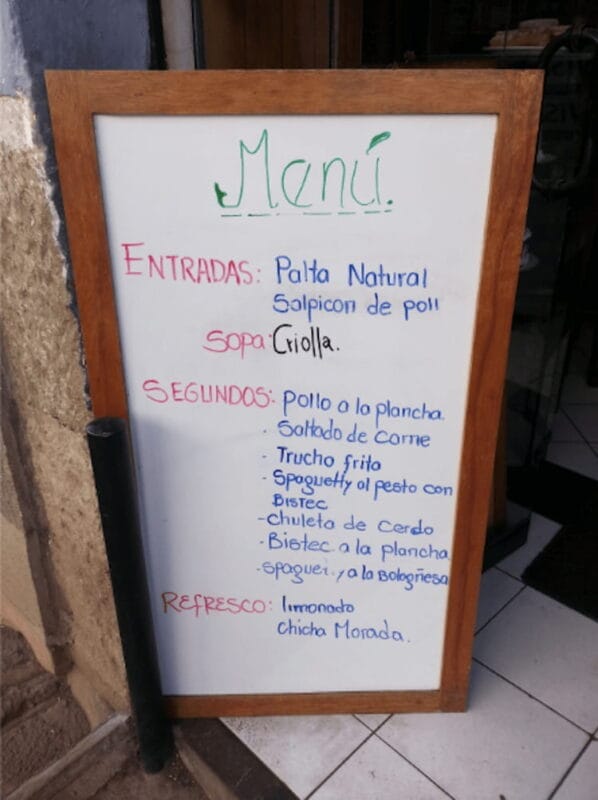 Menú.
ENTRADAS: Palta Natural
Salpicon de poll
Sopa: Criolla.
SEGUNDOS: pollo a la plancha.
· Saltado de Carne
- Trucha frita
- Spaguetty al pesto con
BISTEC
- chuleta de Cerdo
- Bistec a la plancha
- Spaguet.y a la Bologñesa
REFRESCO: limonada
Chicha Morada.